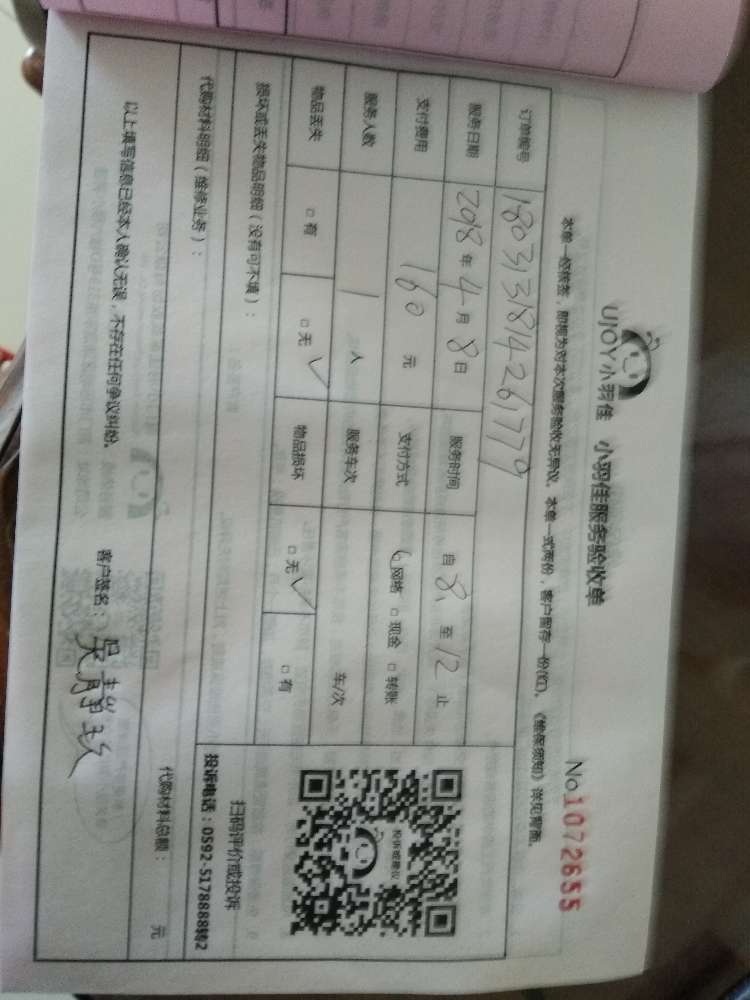 UJOY小羽佳 小羽佳服务验收单 No 1072655
本单一经核签，即视为对本次服务验收无异议。本单一式两份，客户留存一份(红)。《维保须知》详见背面。
订单编号 180313184261779
服务日期 2018年4月8日 服务时间 自8至12止
支付费用 160元 支付方式 网络 □现金 □转账
服务人数 1人 服务车次 车/次
物品丢失 □有 □无✓ 物品损坏 □无✓ □有
投诉或建议
扫码评价或投诉
投诉电话：0592-5178888转2
损坏或丢失物品明细（没有可不填）：
代购材料明细（维修业务）：
代购材料总额： 元
以上填写信息已经本人确认无误，不存在任何争议纠纷。
客户签名：